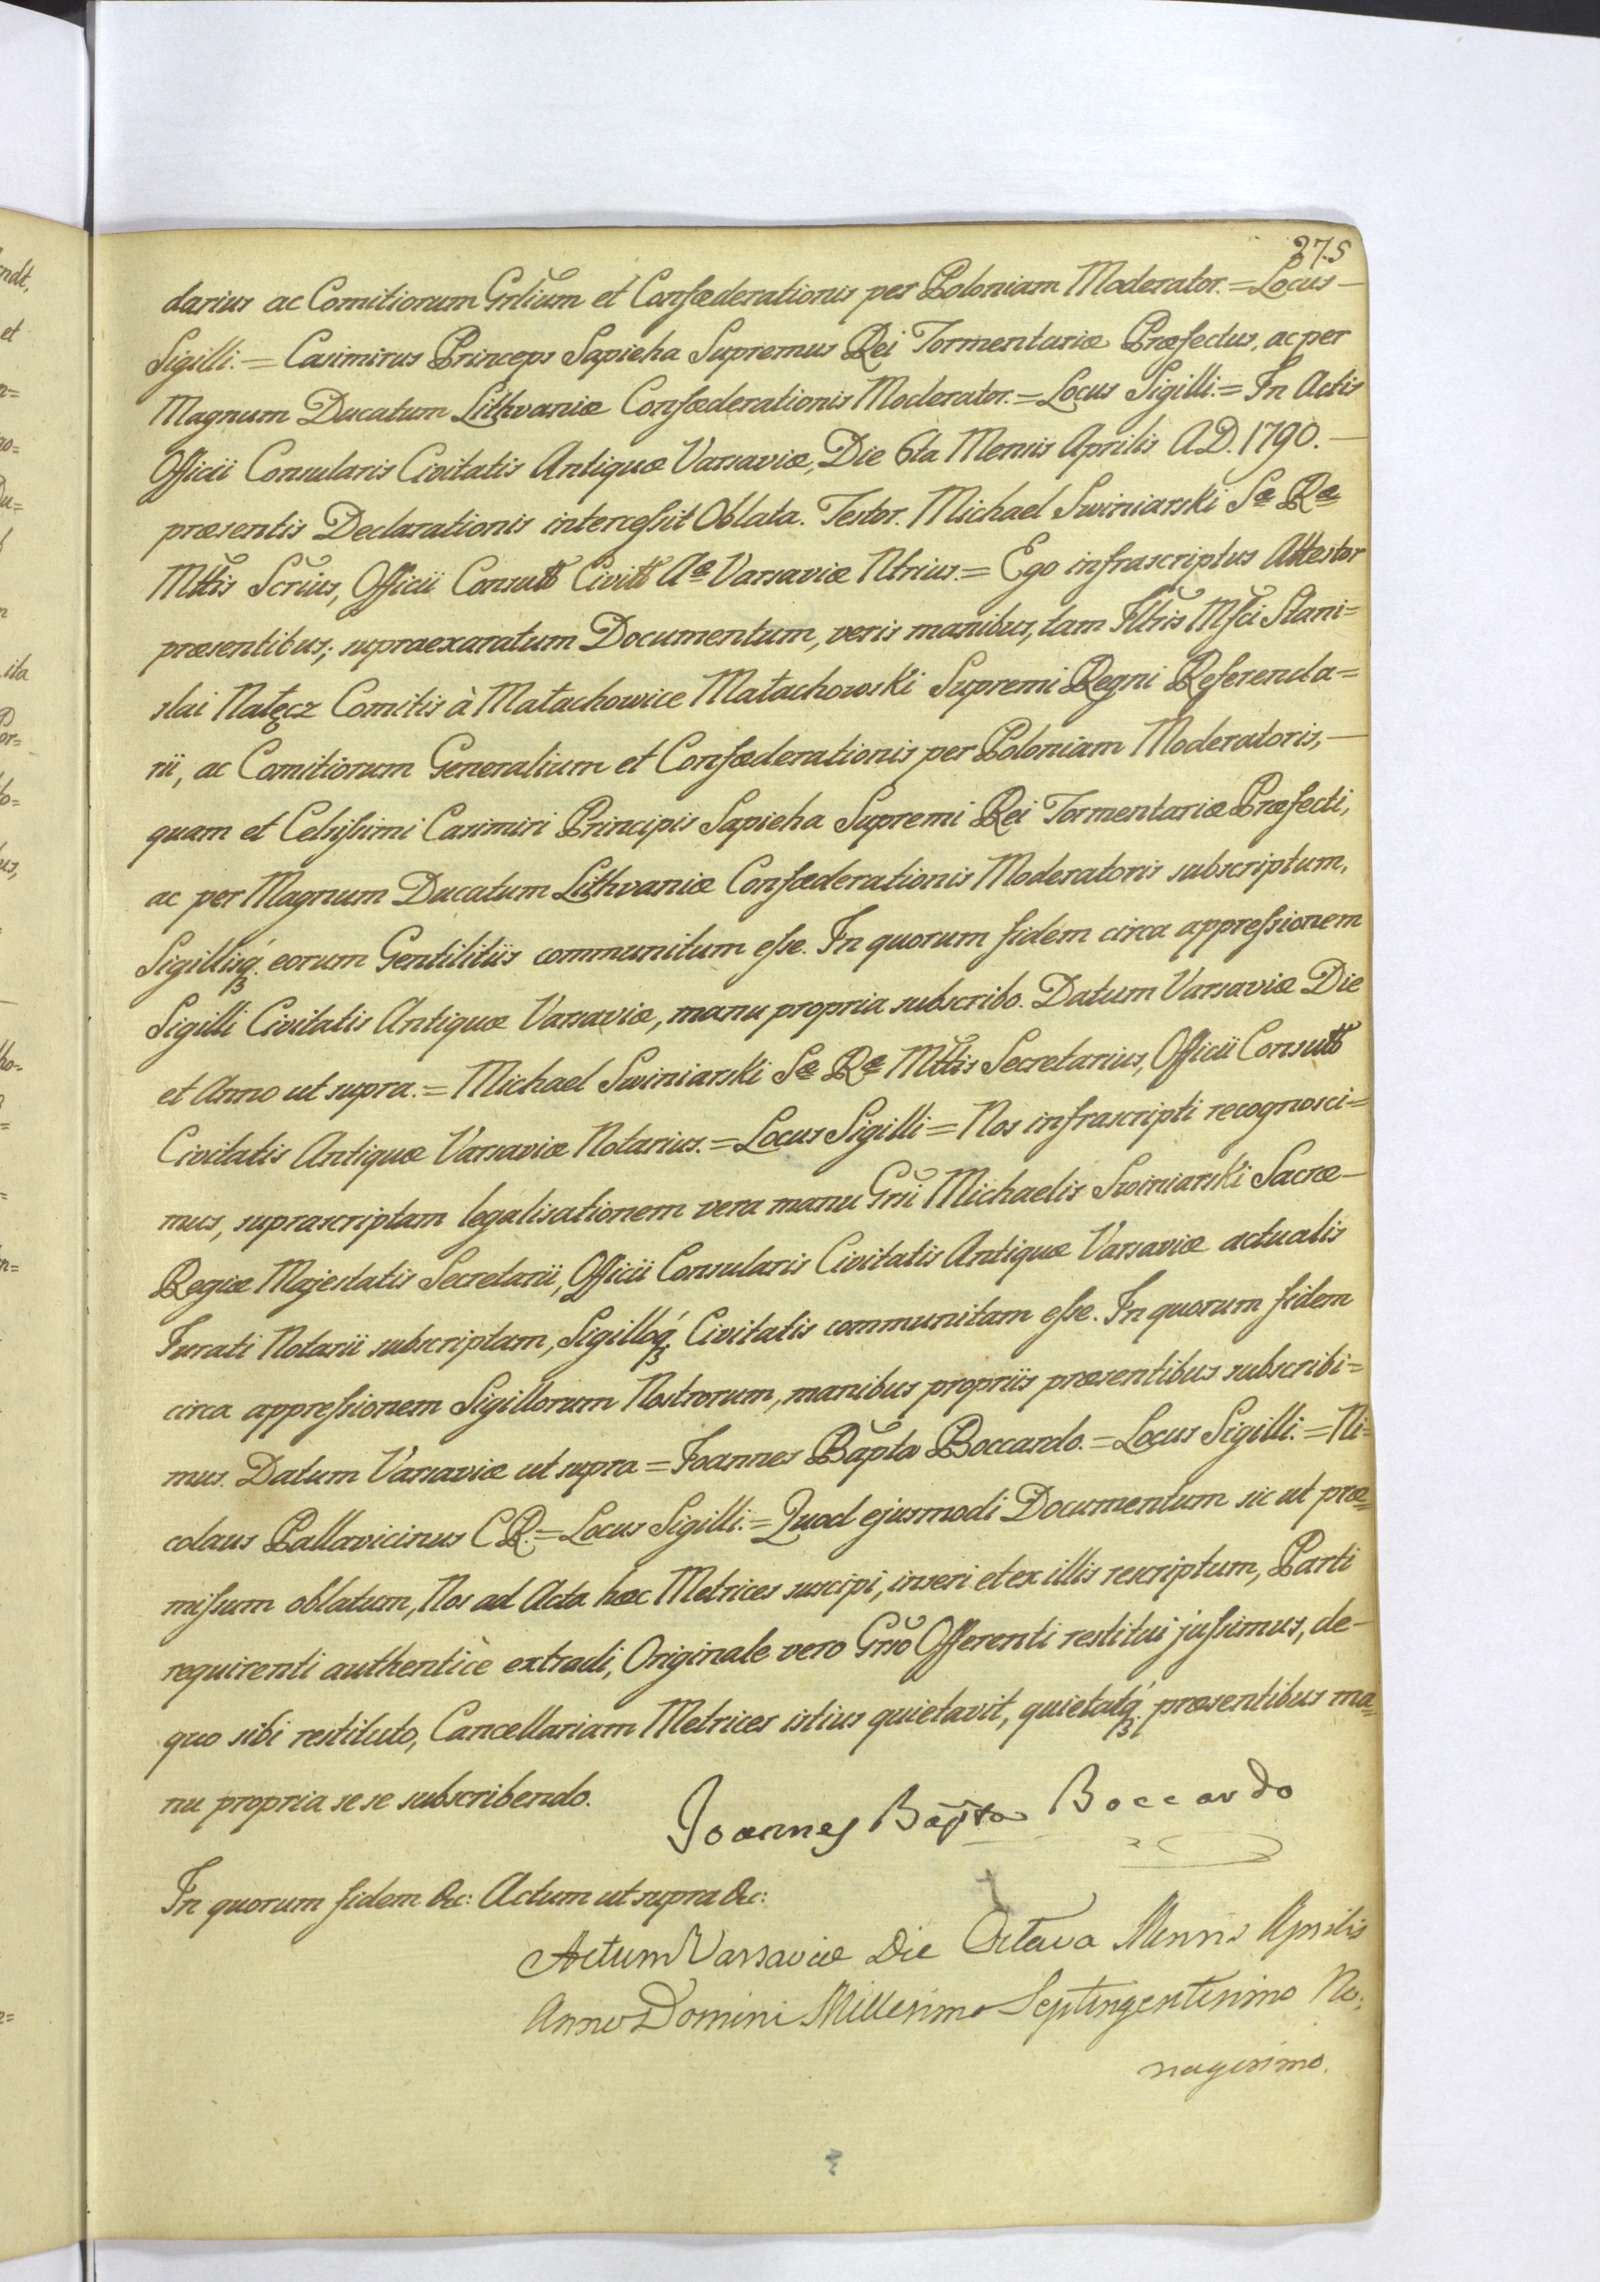 275
darius ac Comitiorum Grlium et Confæderationis per Poloniam Moderator. = Locus —
Sigilli. = Casimirus Princeps Sapieha Supremus Rei Tormentariæ Præfectus, ac per
Magnum Ducatum Lithvaniæ Confæderationis Moderator. = Locus Sigilli. = In Actis
Officii Consularis Civitatis Antiquæ Varsaviæ, Die 6ta Mensis Aprilis A.D. 1790. —
præsentis Declarationis intercessit Oblata. Testor. Michael Swiniarski Sæ Ræ
Mttis Scrius, Officii Consutt Civitt Aæ Varsaviæ Ntrius. = Ego infrascriptus Attestor
præsentibus; supraexaratum Documentum, veris manibus, tam Illtris Mfci Stani=
slai Nałęcz Comitis à Małachowice Małachowski Supremi Regni Referenda=
rii, ac Comitiorum Generalium et Confæderationis per Poloniam Moderatoris, —
quam et Celsissimi Casimiri Principis Sapieha Supremi Rei Tormentariæ Præfecti,
ac per Magnum Ducatum Lithvaniæ Confæderationis Moderatoris subscriptum,
Sigillisq́ꝫ eorum Gentilitiis communitum esse. In quorum fidem circa appressionem
Sigilli Civitatis Antiquæ Varsaviæ, manu propria subscribo. Datum Varsaviæ Die
et Anno ut supra. = Michael Swiniarski Sæ Ræ Mttis Secretarius, Officii Consutt
Civitatis Antiquæ Varsaviæ Notarius. = Locus Sigilli = Nos infrascripti recognosci=
mus, suprascriptam legalisationem vera manu Grsi Michaelis Swiniarski Sacræ —
Regiæ Majestatis Secretarii, Officii Consularis Civitatis Antiquæ Varsaviæ actualis
Jurati Notarii subscriptam, Sigilloq́ꝫ Civitatis communitam esse. In quorum fidem
circa appressionem Sigillorum Nostrorum, manibus propriis præsentibus subscribi=
mus. Datum Varsaviæ ut supra = Joannes Bapta Boccardo. = Locus Sigilli. = Ni=
colaus Pallavicinus C.R. = Locus Sigilli. = Quod ejusmodi Documentum sic ut præ=
missum oblatum, Nos ad Acta hæc Metrices suscipi, inseri et ex illis rescriptum, Parti
requirenti authenticè extradi, Originale vero Grso Offerenti restitui jussimus, de —
quo sibi restituto, Cancellariam Metrices istius quietavit, quietatq́ꝫ præsentibus ma=
nu propria se se subscribendo.
Joannes Bapta Boccardo
In quorum fidem &c: Actum ut supra &c:
Actum Varsaviæ Die Octava Mensis Aprilis
Anno Domini Millesimo Septingentesimo No:
nagesimo.